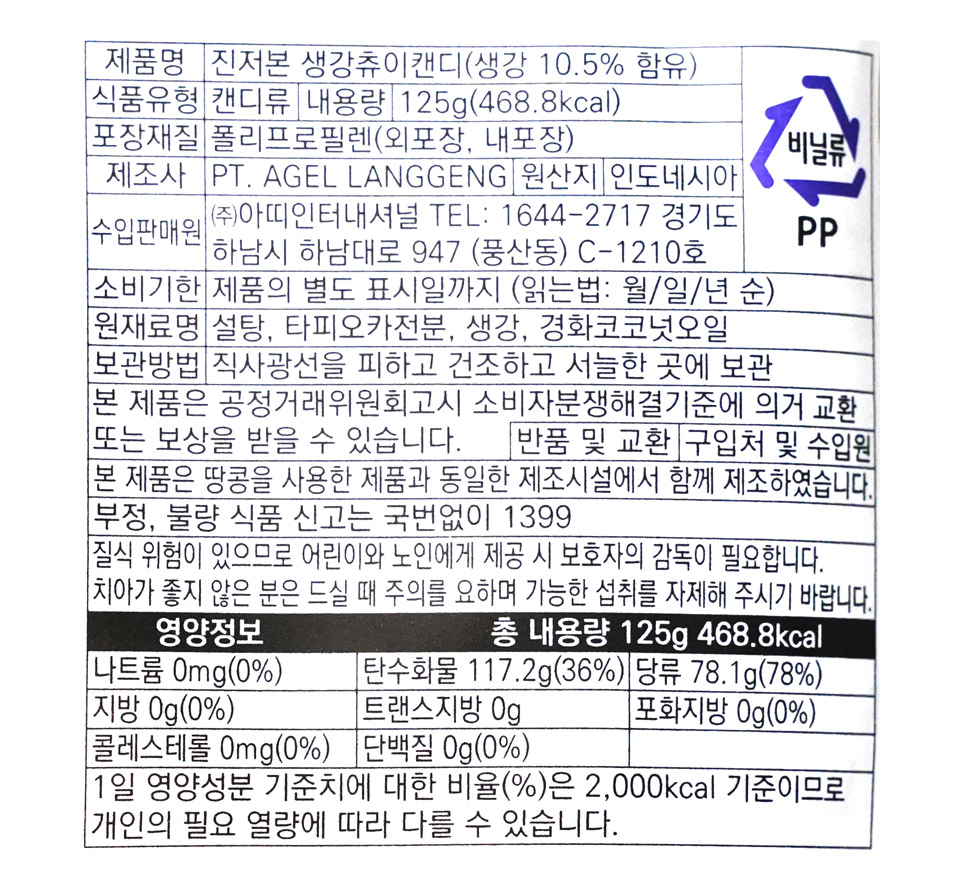 제품명 진저본 생강츄이캔디(생강 10.5% 함유)
식품유형 캔디류 내용량 125g(468.8kcal)
포장재질 폴리프로필렌(외포장, 내포장)
제조사 PT. AGEL LANGGENG 원산지 인도네시아
수입판매원 ㈜아띠인터내셔널 TEL: 1644-2717 경기도
하남시 하남대로 947 (풍산동) C-1210호
비닐류
PP
소비기한 제품의 별도 표시일까지 (읽는법: 월/일/년 순)
원재료명 설탕, 타피오카전분, 생강, 경화코코넛오일
보관방법 직사광선을 피하고 건조하고 서늘한 곳에 보관
본 제품은 공정거래위원회고시 소비자분쟁해결기준에 의거 교환
또는 보상을 받을 수 있습니다. 반품 및 교환 구입처 및 수입원
본 제품은 땅콩을 사용한 제품과 동일한 제조시설에서 함께 제조하였습니다.
부정, 불량 식품 신고는 국번없이 1399
질식 위험이 있으므로 어린이와 노인에게 제공 시 보호자의 감독이 필요합니다.
치아가 좋지 않은 분은 드실 때 주의를 요하며 가능한 섭취를 자제해 주시기 바랍니다.
영양정보 총 내용량 125g 468.8kcal
나트륨 0mg(0%) 탄수화물 117.2g(36%) 당류 78.1g(78%)
지방 0g(0%) 트랜스지방 0g 포화지방 0g(0%)
콜레스테롤 0mg(0%) 단백질 0g(0%)
1일 영양성분 기준치에 대한 비율(%)은 2,000kcal 기준이므로
개인의 필요 열량에 따라 다를 수 있습니다.